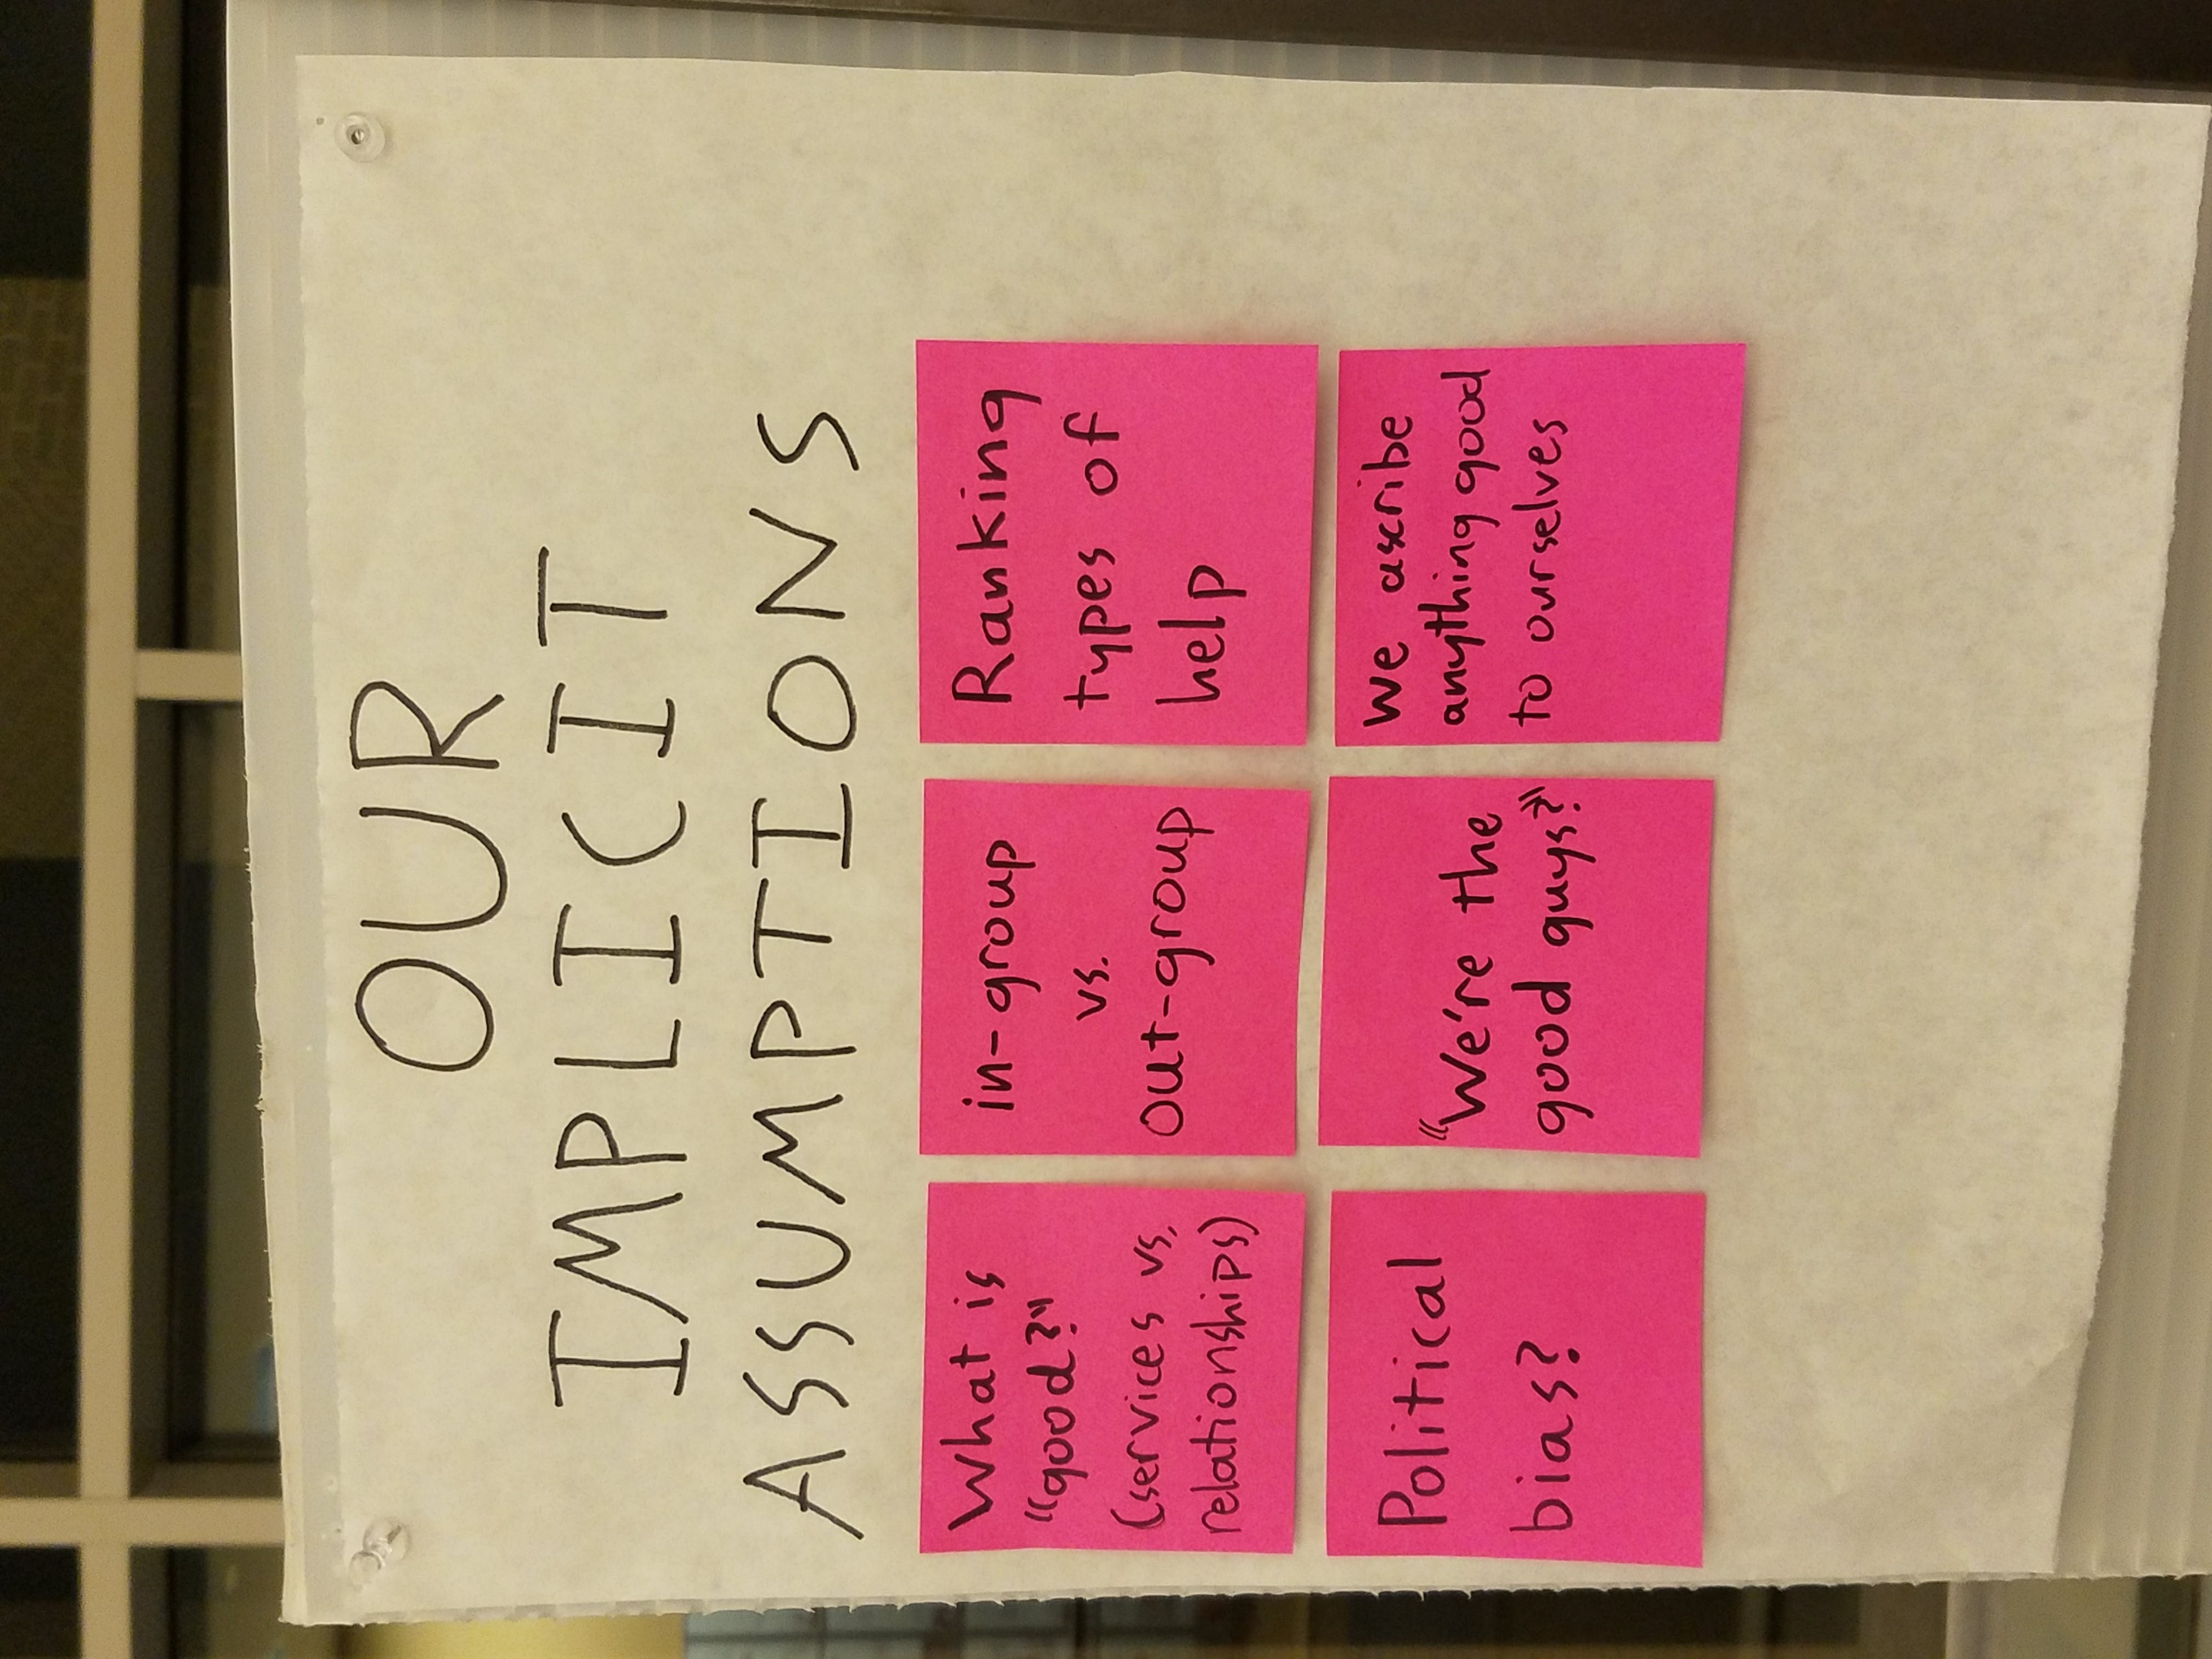 OUR
IMPLICIT
ASSUMPTIONS
What is
"good?"
(services vs.
relationships)
in-group
vs.
out-group
Ranking
types of
help
Political
bias?
"We're the
good guys?"
we ascribe
anything good
to ourselves